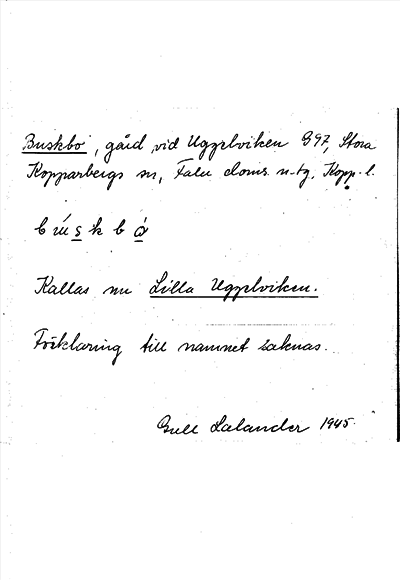 Buskbo, gård vid Uggelviken 997, Stora
Kopparbergs sn, Falu doms. n-tg. Kopp. l.
búskbó
Kallas nu Lilla Uggelviken.
Förklaring till namnet saknas.
Gull Lalander 1945.